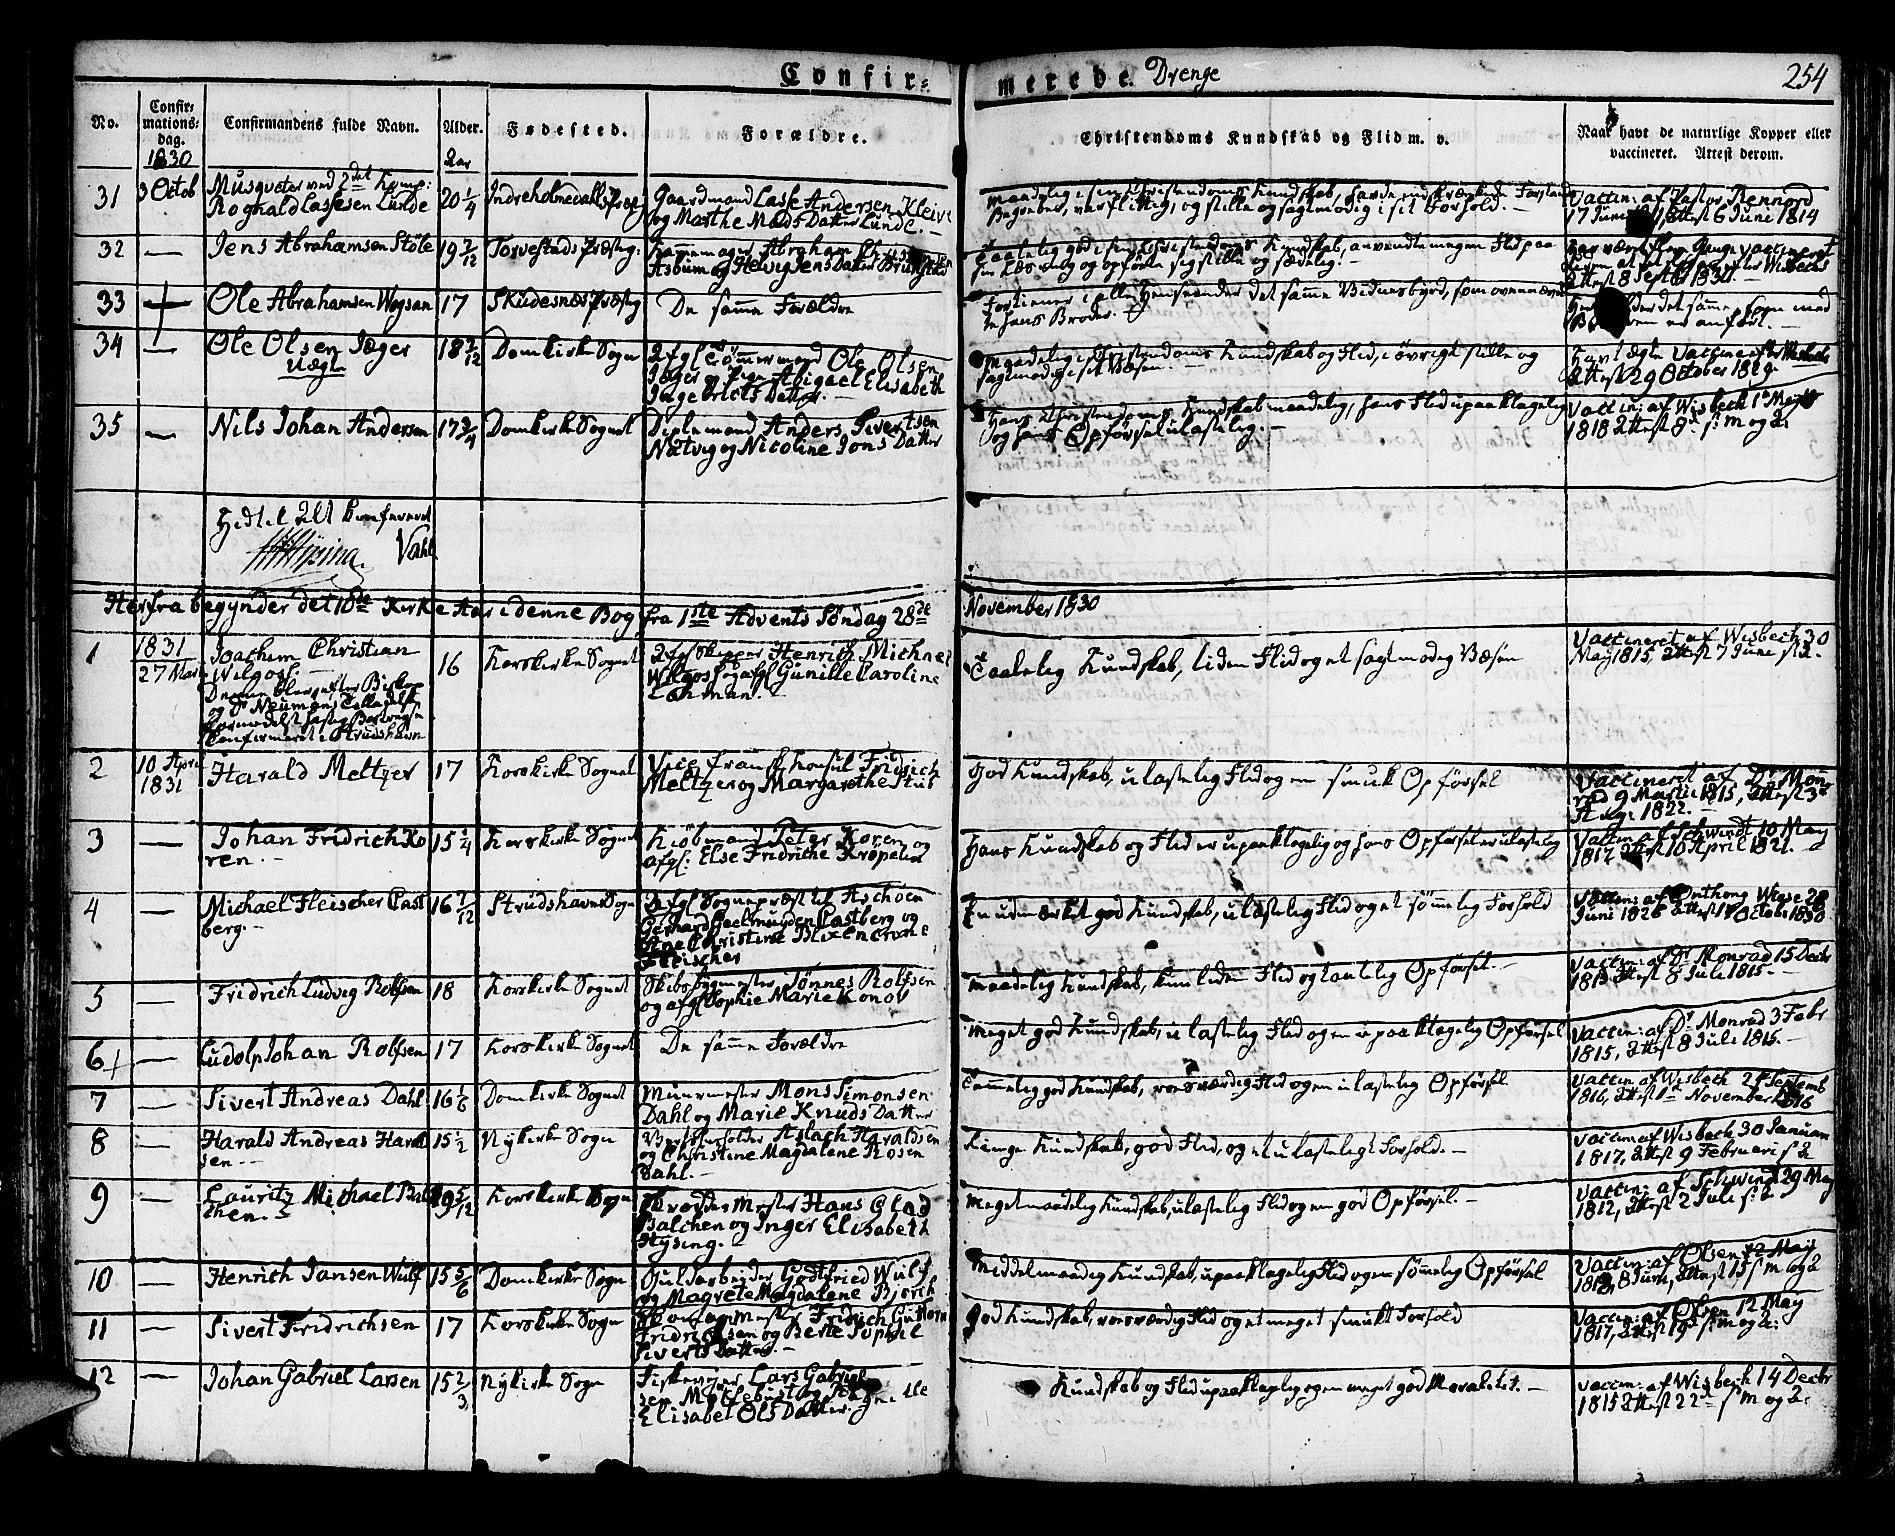 Confir-merede. Drenge
254
No.
Confir-
mations-
dag.
1830
Confirmandens fulde Navn.
Alder.
Aar
Fødested.
Forældre.
Christendoms Kundskab og Flid m. v.
Naar havt de naturlige Kopper eller
vaccineret. Attest derom.
31
3 Octob
Musqueter ved 2det Comp:
Rognald Lassesen Lunde
20 1/4
Indreholmedalls Præst
Gaardmand Lasse Andersen Kleive
og Marthe Mads Datter Lunde.-
maadelig i sin Christendoms Kundskab, havde indskrænkede Forstands
Begreber, var flittig, og stille og sagtmodig i sit Forhold.-
Vaccin: af Pastor Rennord
17 Juni 1814 Attest 6 Juni 1814
32
—
Jens Abrahamsen Støle
19 7/12
Torvestads Præsteg:
Kammager Abraham
Asbum og Helvig Jens Datter
Taalelig god i sin Christendoms Kundskab, anvendte megen Flid paa
sin Læsning og opførte sig stille og sædelig.
Har været flere Gange vaccineret
Attest 8 Septb 1830.
33
Ole Abrahamsen Wogsan
17
Skudesnæs Præsteg
De samme Forældre
Fortiener i alle Henseender det samme Vidnesbyrd, som ovennævnte
hans Broder.
det samme som med
Broderen er anført.-
34
—
Ole Olsen Jæger
Uægte
18 7/12
Domkirke Sogn
Afgl Tømmermand Ole Olsen
Jæger og Pige Abigael Elisabeth
Inge brets Datter.-
Maadelig i Christendoms Kundskab og Flid, i øvrigt stille og
sagtmodig i sit Væsen.-
Attest 29 October 1829.
35
—
Nils Johan Andersen
17 3/4
Domkirke Sognet
Piplemand Anders Sivertsen
Natvig og Nicoline Jons Datter
Hans Christendoms Kundskab maadelig, hans Flid upaaklagelig
og hans Opførsel ulastelig.-
Vaccin: af Wisbech 1 May
1818 Attest 8de s: M og A:
Hidtil Alt Confereret
Vahl
Herfra begynder det 18de Kirke Aar i denne Bog, fra 1ste Advents Søndag 28de November 1830
1
1831
27 Marti
Joachim Christian
Wilgoss:
16
Korskirke Sognet
Afgl Skipper Henrich Michael
Wilgoss og afgl Gunille Caroline
Lohman.
Taalelig Kundskab, liden Flid og et sagtmodig Væsen
Vaccineret af Wisbech 30
May 1815, Attest 7 Juni s: A:
2
10 April
1831
Harald Meltzer
17
Korskirke Sognet
Vice fransk Konsul Fridrich
Meltzer og Margarethe Stub
God Kundskab, ulastelig Flid og en smuk Opførsel
Vaccineret af Dr Mon
rad 9 Martii 1815, Attest 3de
Aug: 1822.
3
—
Johan Fridrich Ko
ren.-
15 1/4
Korskirke Sognet
Kiøbmand Peter Koren og
afgl: Else Fridriche Krøpelin
Hans Kundskab og Flid er upaaklagelig og hans Opførsel er ulastelig
Vaccin af Schwindt 10 May
1817 Attest 10 April 1821.
4
—
Michael Fleischer Cast
berg.-
16 7/12
Strudshavns Sogn
Afgl Sognepræst til Aschøen
Gerhard Geelmuyden Castberg og
Ane Christine Blixencrone
Fleischer
En udmærket god Kundskab, ulastelig Flid og et sømmelig Forhold
Vaccin: af Onthong Wiese 28
Juni 1826 Attest 1 October 1830
5
—
Fridrich Ludvig Rolfsen
18
Korskirke Sognet
Skibsbygmester Jønnes Rolfsen
og afgl Sophie Marie Konov
Maadelig Kundskab, kun liden Flid og taalelig Opførsel.-
Vaccin: af Dr Monrad 15 Decbr
1813 Attest 8 Juli 1815.-
6
—
Ludolp Johan Rolfsen
17
Korskirke Sognet
De samme Forældre
Meget god Kundskab, ulastelig Flid og en upaaklagelig Opførsel
Vaccin: af Dr Monrad 3 Febr
1815, Attest 8 Juli 1815.-
7
—
Sivert Andreas Dahl
16 1/6
Domkirke Sognet
Muurmester Mons Simonsen
Dahl og Marie Knuds Datter
Temmelig god Kundskab, roesværdig Flid og en ulastelig Opførsel
Vaccin: af Wisbech 21 Septemb
1816, Attest 1ste November 1816
8
—
Harald Andreas Harald
sen.-
15 1/2
Nykirke Sogn
Værtsholder Aslach Haraldsen
og Christine Magdalene Rosen
dahl.-
Ringe Kundskab, god Flid, og et ulasteligt Forhold.-
Vaccin: af Wisbech 30 Januari
1817, Attest 9 Februari s: A
9
—
Lauritz Michael Bal
chen.-
19 5/12
Korskirke Sogn
Skrædder Mester Hans Glad
Balchen og Inger Elisabeth
Hysing.-
Meget maadelig Kundskab, ulastelig Flid og en god Opførsel.-
Vaccin: af Schwindt 29 May
1812, Attest 2 Juli s: A:
10
—
Henrich Jansen Wulf
15 5/6
Domkirke Sogn
Guldarbeider Godtfried Wulf
og Magrete Magdalene Bjorch
Middelmaadig Kundskab, upaaklagelig Flid og en sømmelig Opførsel
Vaccin: af Olsen 12 May
Attest 15 s: M og A
11
—
Sivert Fridrichsen
17
Korskirke Sogn
Fridrich Guttorm
Fridrichsen og Berte Sophie
Siverts Datter.-
God Kundskab, roesværdig Flid og et meget smukt Forhold
Vaccin: af Olsen 12 May
1817, Attest 19de s: M og A:
12
—
Johan Gabriel Larsen
15 2/3
Nykirke Sogn
Fiskeveyer Lars Gabriel
sen Myklebust og
Elisabet Ols Datter.
Kundskab og Flid upaaklagelig og en meget god Moralitet.-
Vaccin: af Wisbech 14 Decbr
1815 Attest 22de s: M og A: